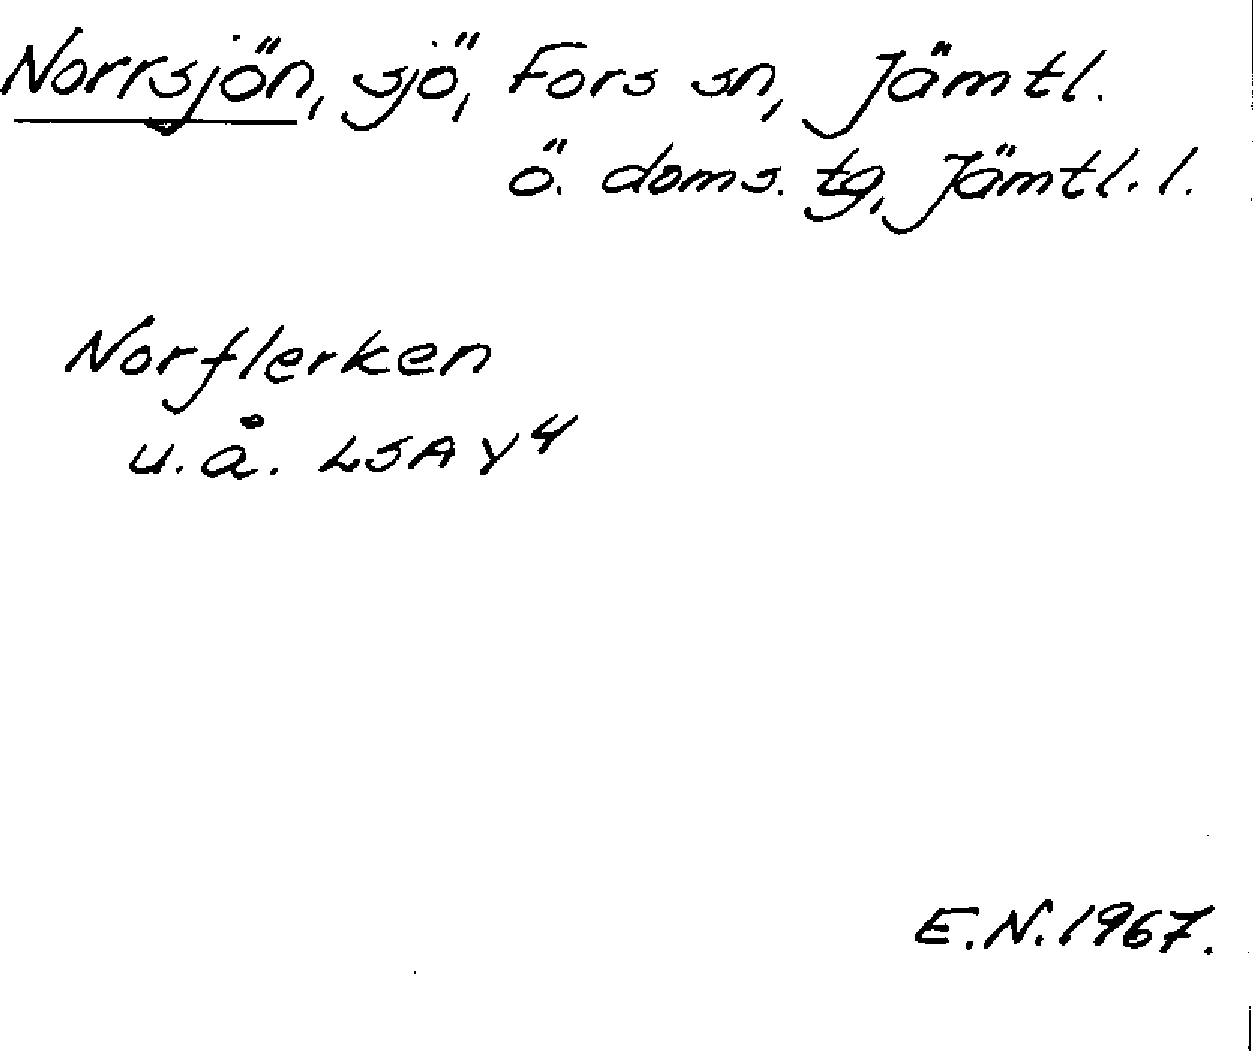 Norrsjön, sjö, Fors sn, Jämtl.
ö. doms. tg, Jämtl. l.
Norflerken
u.å. LSA Y4
E.N. 1967.